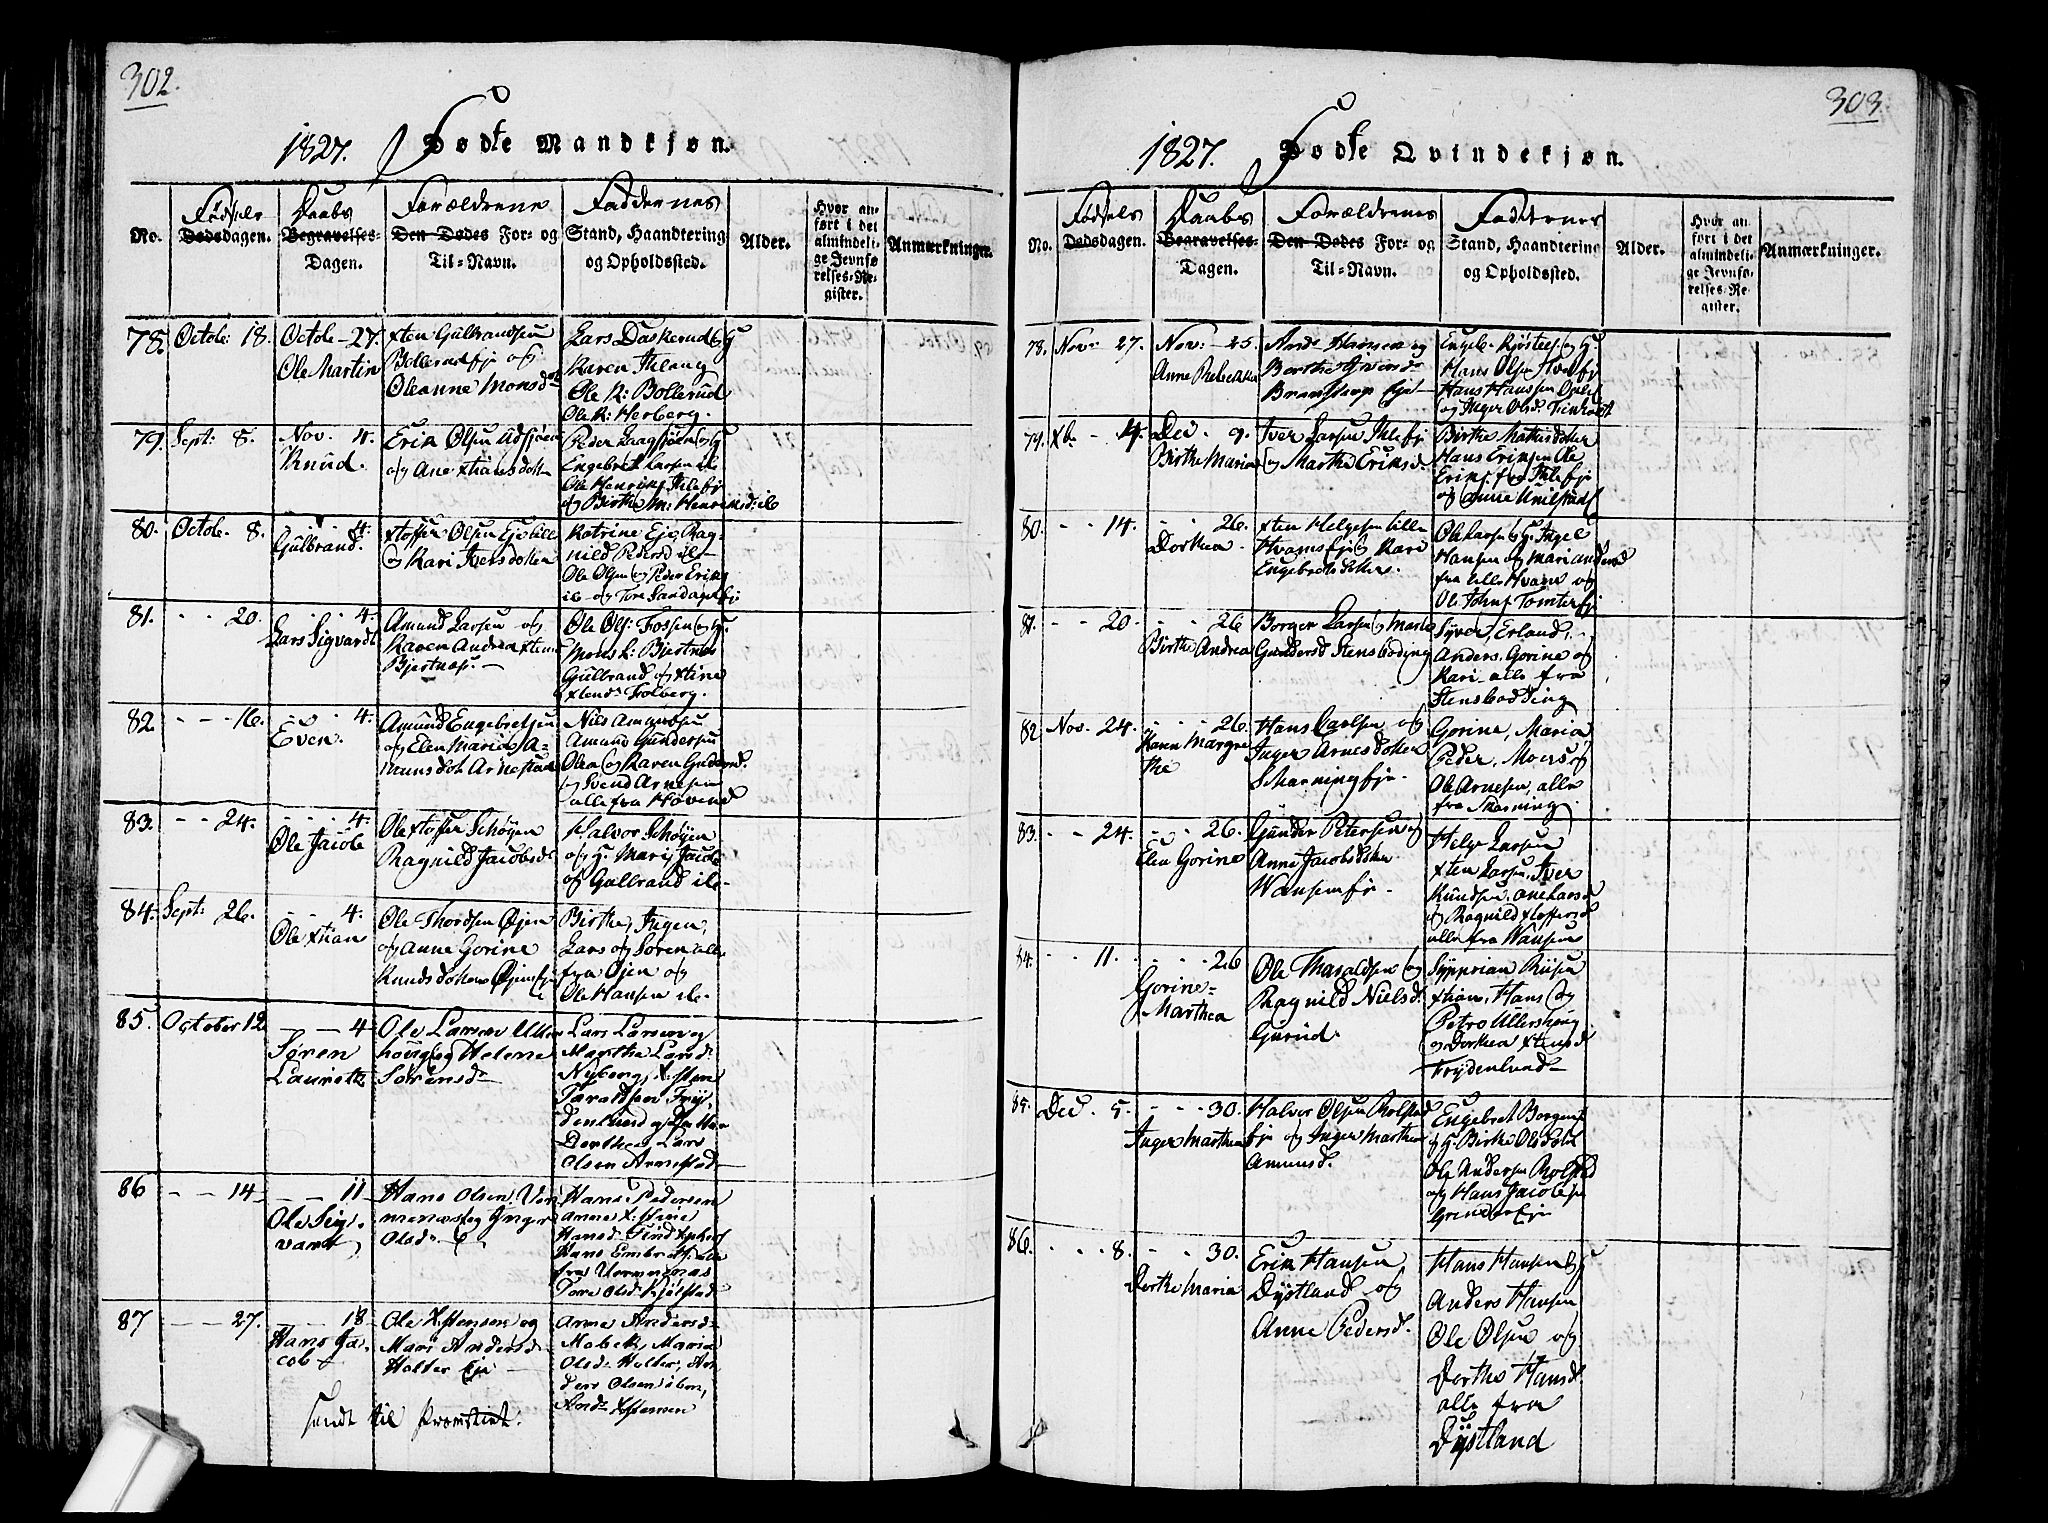 302.
1827. Fødte Mandkjøn.
No.
Fødsels Dødsdagen.
Daabs Begravelses-Dagen.
Forældrene Den Dødes For- og Til-Navn.
Faddernes Stand, Haandtering og Opholdssted.
Alder.
Hvor anført i det almindelige Jevnførelses-Register.
Anmærkninger.
78. Octobr: 18.
Octobr - 27.
Ole Martin
xten Gulbrandsen
Bollerudej og
Oleanne Monsd
Lars Daskerud og H
Karen Ihlang
Ole K: Bollerud
Ole K: Herberg.
79. Sept: 8.
Nov. 4.
Knud.
Erik Olsen
og Ane xtiansdotter
Peder
Engebret Larsen ib
Ole Henriks Ihleej
og Birthe M: Henriksd: ib
80. Octobr. 8.
- - 4.
Gulbrand.
xtoffer Olsen Eje lille
og Kari Iversdotter
Katrine Eje, Rag-
nild Pedersd ib
Ole Olsen og Peder Eriks
ib - og Tore Sandagerej
81. - - 20.
- - 4.
Lars Sigvardt
Amund Larsen og
Karen Andrea xtens
Bjertnæs. -
Ole Ols: Fossen og H.
Mons L: Bjertnes
Gulbrand og xtine
xtensd: Folberg.
82. - - 16.
- - 4.
Even.
Amund Engebretsen
og Elen Maria A-
munsdot Arnestad
Niels Amundsen
Amund Gundersen
Olea og Karen Gudersd.
og Svend Arnesen
alle fra Hovind
83. - - 24.
- - 4.
Ole Jacob
Ole xtoffer Schøyen
Ragnild Jacobsd
Halvor Schøyen
og H. Mari Jacob
og Gulbrand ib.
84. Sept: 26.
- - 4.
Ole xtian
Ole Thordsen Øjen
og Anne Gorine
Knudsdotter Øjen
Birthe, Ingen,
Lars og Søren alle
fra Øjen og
Ole Hansen ib.
85. October 12
- - 4
Søren
Lauritz
Ole Larsen Ullers
houg og Helene
Sørensd
Lars Larsen og
Martha Larsd
Nyberg, xsten
Taraldsen Fry
denlund og
Dorthea Lars
Olsen Arnestad
86 - - 14
- - 11
Ole Sig-
vardt
Hans Olsen Vor
menæs og Inger
Olsd.
Hans Pedersen
Anne
Hansd:
Hans Embretsen
fra Vormenæs
Tore Olsd: Kjølstad
87 - - 27.
- - 18
Hans Ja-
cob
Ole Xstensen og
Mari Andersd
Holter Eje
Anne Andersd
Mobek, Maria
Olsd: Holter, An
ders Olsen ibm,
And: Xstensen
sendt til Provstiet.
303.
1827. Fødte Qvindekjøn.
No.
Fødsels Dødsdagen.
Daabs Begravelses-Dagen.
Forældrenes Den Dødes For- og Til-Navn.
Faddernes Stand, Haandtering og Opholdssted.
Alder.
Hvor anført i det almindelige Jevnførelses-Register.
Anmærkninger.
78. Nov: 27.
Nov: - 25.
Anne Rebekka
And: Hansen og
Berthe Iversd
Engeb. og H.
Hans Olsen
Hans Hanssen
og Inger Olsd.
79. Xb. - 4.
Dec. 9.
Birthe Maria
Iver Larsen Ihleej
og Marthe Eriksd.
Birthe Mathisdotter
Hans Eriksen Ole
Eriks. fra Ihleej
og Anne
80. - - 14.
- - 26.
Dorthea.
xten Helgesen lille
Hvamsej og Kari
Engebretsdotter.
Ole Larsen og H. Ingeb
Hansen og Mari Andersd
fra lille Hvam og
Ole Johns Tomterej
81. - - 20.
- - 26
Birthe Andrea
Borger Larsen og Marie
Gundersd Stensbøding
Syver, Erland,
Anders, Gorine og
Kari - alle fra
Stensbødding
82 Nov. 24.
- - 26.
Hann Margre
the
Hans Carlsen og
Inger Arnesdotter
Skarningej.
Gorine, Maria
Peder, Moers og
Ole Arnesen, alle
fra Skarning
83. - - 24.
- - 26.
Elen Gorine
Gunder Petersen og
Anne Jacobsdotter
Wansemej.
Helge Larsen
xten Larsen, Iver
Knudsen, Ane Larsd
og Ragnild xtoffersd
alle fra Wansem
84. - - 11.
- - 26
Gorine
Marthea
Ole Tharaldsen og
Ragnild Nielsd.
Gurud.
Syprian Riisen
xtian, Hans og
Petro Ullershoug
og Dorthea xtensd
Frydenlund
85. Dec. 5.
- - 30.
Inger Marthea
Halvor Olsen Rolstad
ej og Inger Marthea
Amunsd.
Engebret Borgens
og H. Birthe Olsdotter
Ole Andersen Rolstad
og Hans Jacobsen
Grinder Eje
86. - - 8.
- - 30.
Dorthe Maria
Erik Hansen
Dystland og
Anne Pedersd.
Hans Hansen og H
Anders Hansen
Ole Olsen og
Dorthe Hansd
alle fra
Dystland